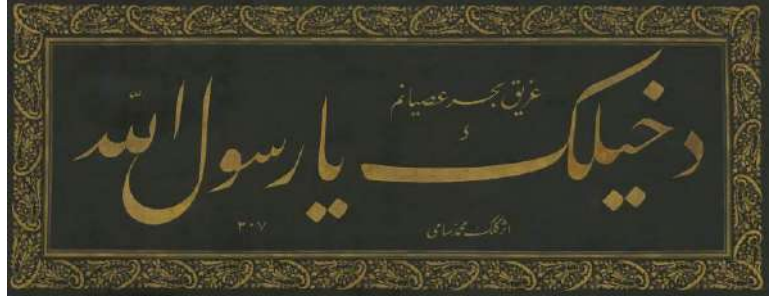 غریق بحر عصیانم
د
دخیلک یا رسول الله
اثر کلک محمد سامی
٣٠٧